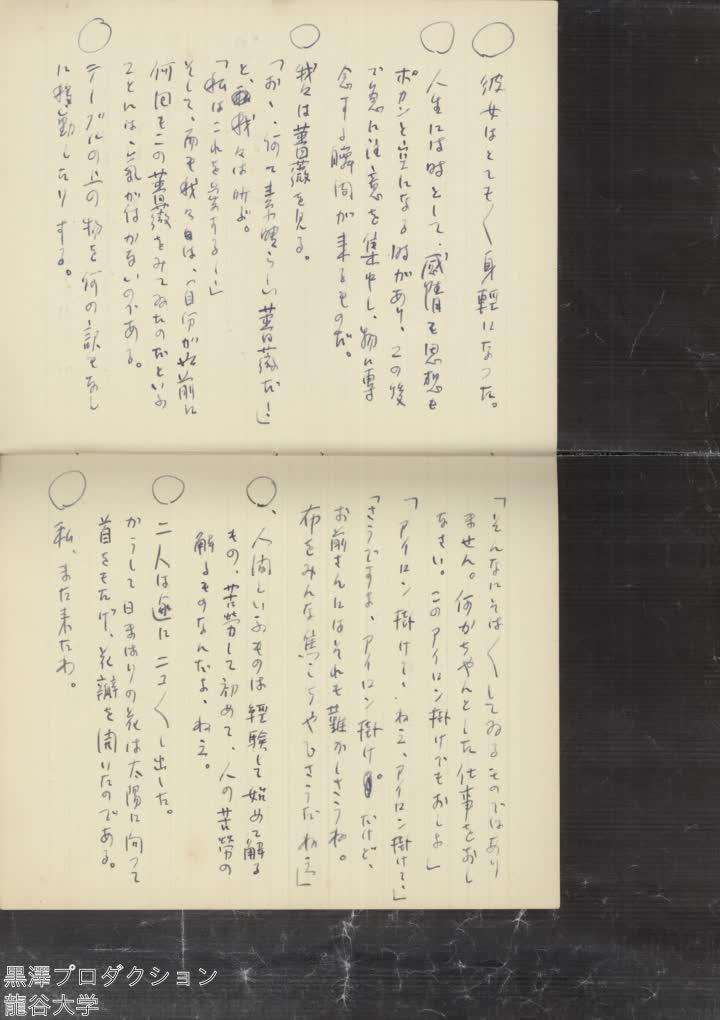 ○ 彼女はとても〱身輕になつた。
○ 人生には時として、感情も思想も
ポカンと空になる時があり、この後
で急に注意を集中し、物に専
念する瞬間が来るものだ。
○ 我々は薔薇を見る。
「おゝ、何て素晴らしい薔薇だ！」
と、我々は叫ぶ。
「私はこれを愛する！」
そして、而も我々は、自分が以前に
何回もこの薔薇をみてゐたのだといふ
ことには、気が付かないのである。
○ テーブルの上の物を何の訳もなし
に移動したりする。
「そんなにそは〱してゐるものではあり
ません。何かちやんとした仕事をおし
なさい。このアイロン掛けでもおしよ」
「アイロン掛けて、ねえ、アイロン掛けて、」
「さうですよ、アイロン掛け。だけど、
お前さんにはそれも難かしさうね。
布をみんな焦こらやしさうだねえ」
○、人間といふものは經験して始めて解る
もの、苦勞して初めて、人の苦勞の
解るものなんだよ、ねえ。
○ 二人は遂にニコ〱し出した。
かうして日まはりの花は太陽に向つて
首をもたげ、花瓣を開いたのである。
○ 私、また来たわ。
黒澤プロダクション
龍谷大学